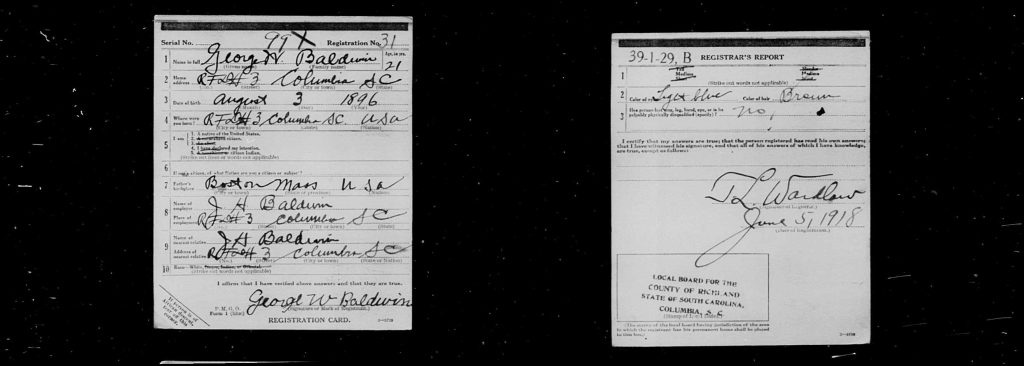 Serial No. 99 X Registration No. 31
1 Name in full George W. Baldwin Age, in yrs.
(Given name) (Family name) 21
2 Home address RFD# 3 Columbia SC
(No.) (Street) (City or town) (State)
3 Date of birth August 3 1896
(Month) (Day) (Year)
4 Where were you born? RFD# 3 Columbia SC. USA
(City or town) (State) (Nation)
5 I am 1. A native of the United States.
2. A naturalized citizen.
3. An alien.
4. I have declared my intention.
5. A noncitizen or citizen Indian.
(Strike out lines or words not applicable)
6 If not a citizen, of what Nation are you a citizen or subject?
7 Father's birthplace Boston Mass USA
(City or town) (State or province) (Nation)
8 Name of employer J H Baldwin
Place of employment RFD# 3 Columbia SC
(No.) (Street) (City or town) (State)
9 Name of nearest relative J H Baldwin
Address of nearest relative RFD# 3 Columbia SC
(No.) (Street) (City or town) (State or Nation)
10 Race—White, Negro, Indian, or Oriental.
(Strike out words not applicable)
I affirm that I have verified above answers and that they are true.
George W Baldwin
P. M. G. O. (Signature or Mark of Registrant.)
Form 1 (blue)
REGISTRATION CARD.
If person is of African descent, tear off this corner.
39-1-29. B REGISTRAR'S REPORT
1 Tall Medium Short Slender Medium Stout
(Strike out words not applicable)
2 Color of eyes Light blue Color of hair Brown
3 Has person lost arm, leg, hand, eye, or is he
palpably physically disqualified (specify)? No,
I certify that my answers are true; that the person registered has read his own answers;
that I have witnessed his signature, and that all of his answers of which I have knowledge,
are true, except as follows:
T L. Wardlaw
(Signature of Registrar.)
June 5, 1918
(Date of Registration.)
LOCAL BOARD FOR THE
COUNTY OF RICHLAND
STATE OF SOUTH CAROLINA,
COLUMBIA, S. C.
(Stamp of Local Board)
(The stamp of the local board having jurisdiction of the area
in which the registrant has his permanent home shall be placed
in this box.)